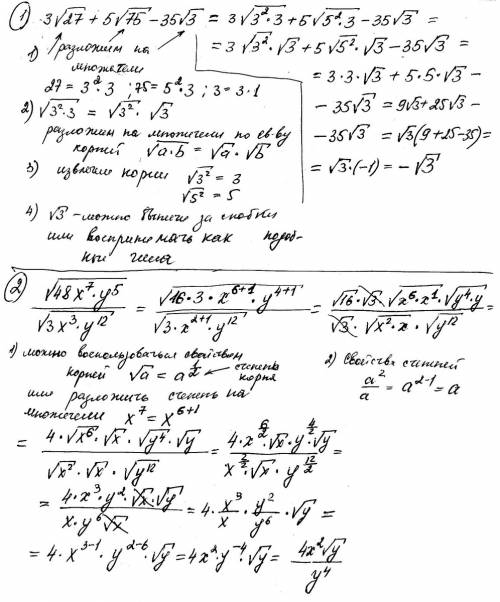 ① 3√27 + 5√75 − 35√3 = 3√(3²·3) + 5√(5²·3) − 35√3 =
1) разложим на множители
27 = 3²·3 ; 75 = 5²·3 ; 3 = 3·1
2) √(3²·3) = √3² · √3
разложим на множители по св-ву
корней √(a·b) = √a · √b
3) извлечём корни √3² = 3
√5² = 5
4) √3 - можно вынести за скобки
или воспринимать как подоб-
ные числа
= 3√3² · √3 + 5√5² · √3 − 35√3 =
= 3·3·√3 + 5·5·√3 −
− 35√3 = 9√3 + 25√3 −
− 35√3 = √3(9+25−35) =
= √3·(−1) = −√3
② √(48x⁷·y⁵) / √(3x³·y¹²) = √(16·3·x⁶⁺¹·y⁴⁺¹) / √(3·x²⁺¹·y¹²) = √16·√3·√(x⁶·x¹)·√(y⁴·y) / √3·√(x²·x)·√y¹²
1) можно воспользоваться свойством
корней √a = a^(1/2) ← степень корня
или разложить степень на
множители x⁷ = x⁶⁺¹
2) Свойства степеней
a²/a = a²⁻¹ = a
= 4·√x⁶·√x·√y⁴·√y / √x²·√x·√y¹² = 4·x^(6/2)·√x·y^(4/2)·√y / x^(2/2)·√x·y^(12/2) =
= 4·x³·y²·√x·√y / x·y⁶√x = 4·x³/x·y²/y⁶·√y =
= 4·x³⁻¹·y²⁻⁶·√y = 4x²·y⁻⁴·√y = 4x²√y / y⁴